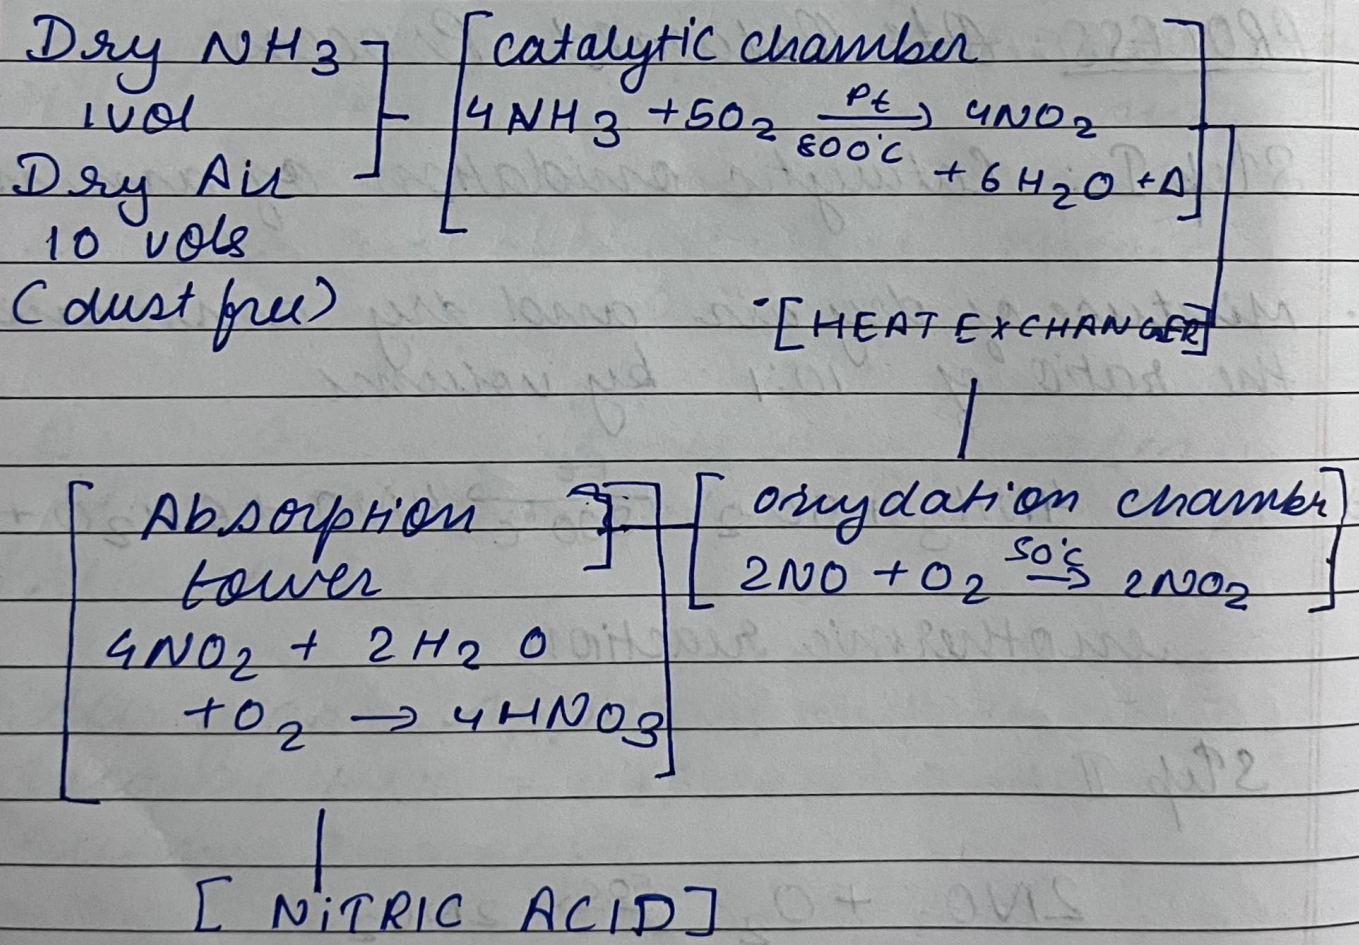 Dry NH3
1vol
Dry Air
10 vols
(dust free)
[catalytic chamber
4NH3 + 5O2 Pt→ 800°C 4NO2
+ 6H2O + Δ]
[HEAT EXCHANGER]
[oxydation chamber]
2NO + O2 50°C→ 2NO2
[Absorption]
tower
4NO2 + 2H2O
+ O2 → 4HNO3
[NiTRIC ACID]